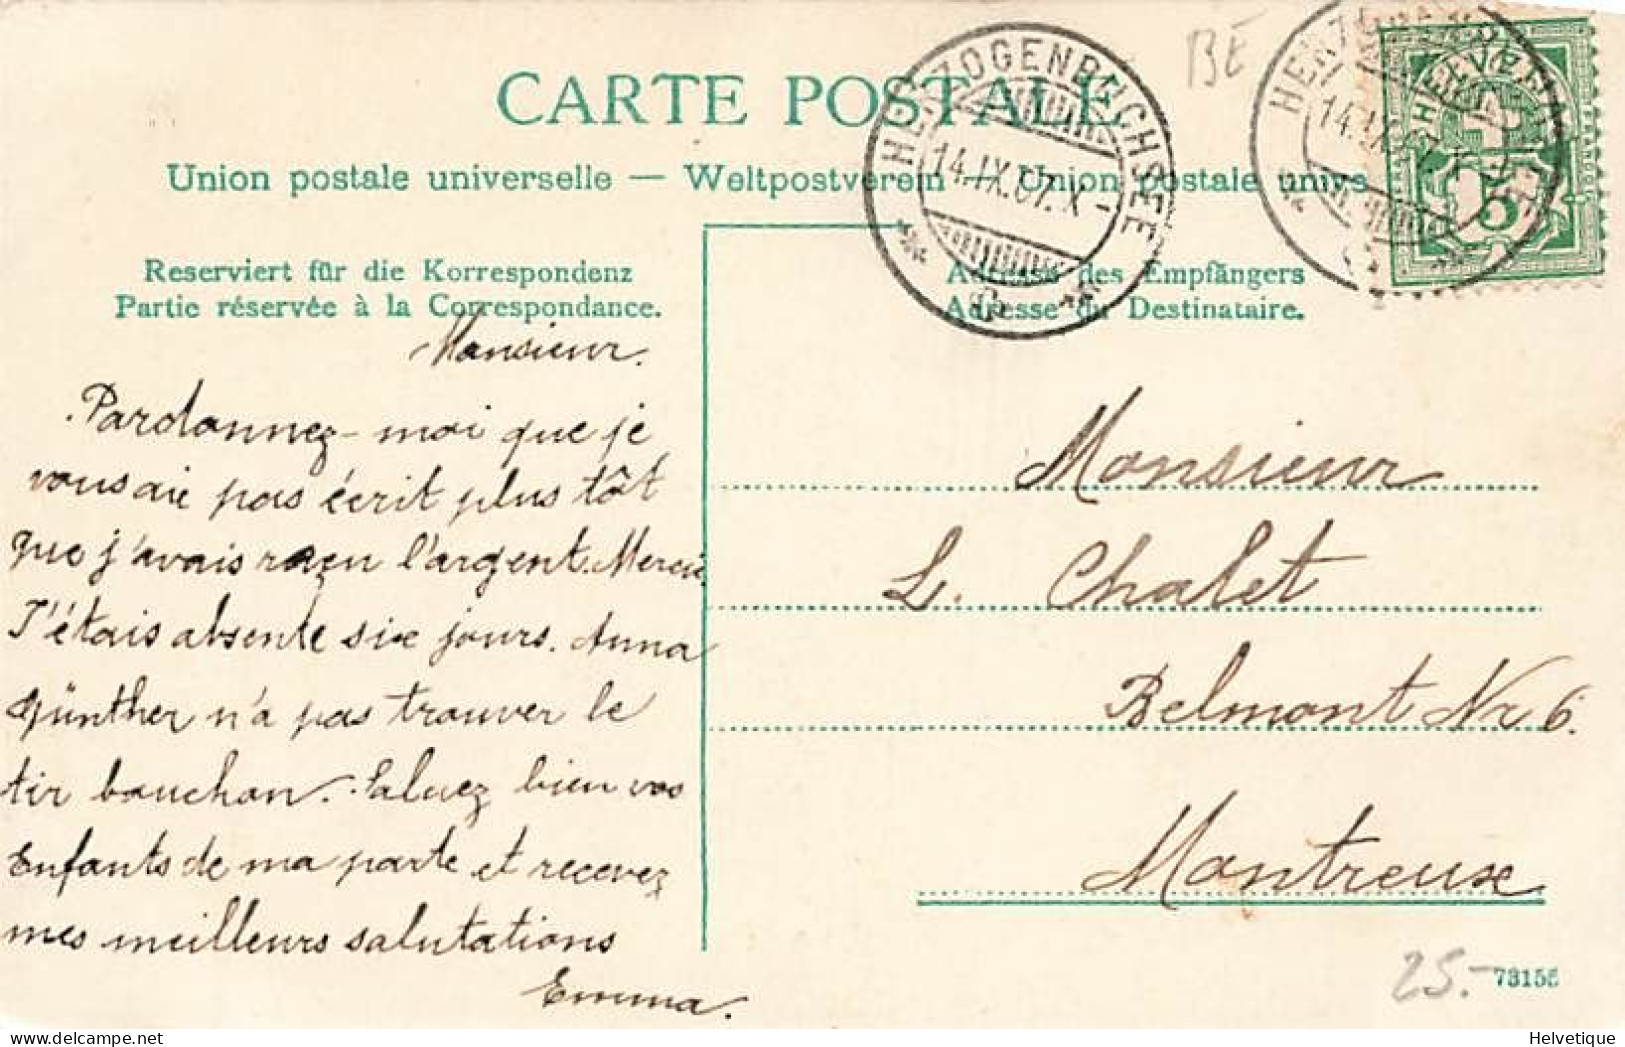 BE
CARTE POSTALE
Union postale universelle — Weltpostverein — Union postale univs
HERZOGENBUCHSEE
14.IX.07.X-
HELVETIA
5
Reserviert für die Korrespondenz
Partie réservée à la Correspondance.
Adresse des Empfängers
Adresse du Destinataire.
Monsieur.
Pardonnez-moi que je
vous aie pas écrit plus tôt
que j'avais reçu l'argent. Merci.
J'étais absente six jours. Anna
Günther n'a pas trouver le
tir bouchon. Saluez bien vos
Enfants de ma parte et recevez
mes meilleurs salutations
Emma.
Monsieur
L. Chalet
Belmont Nr 6.
Montreux
25.-
73155
delcampe.net
Helvetique